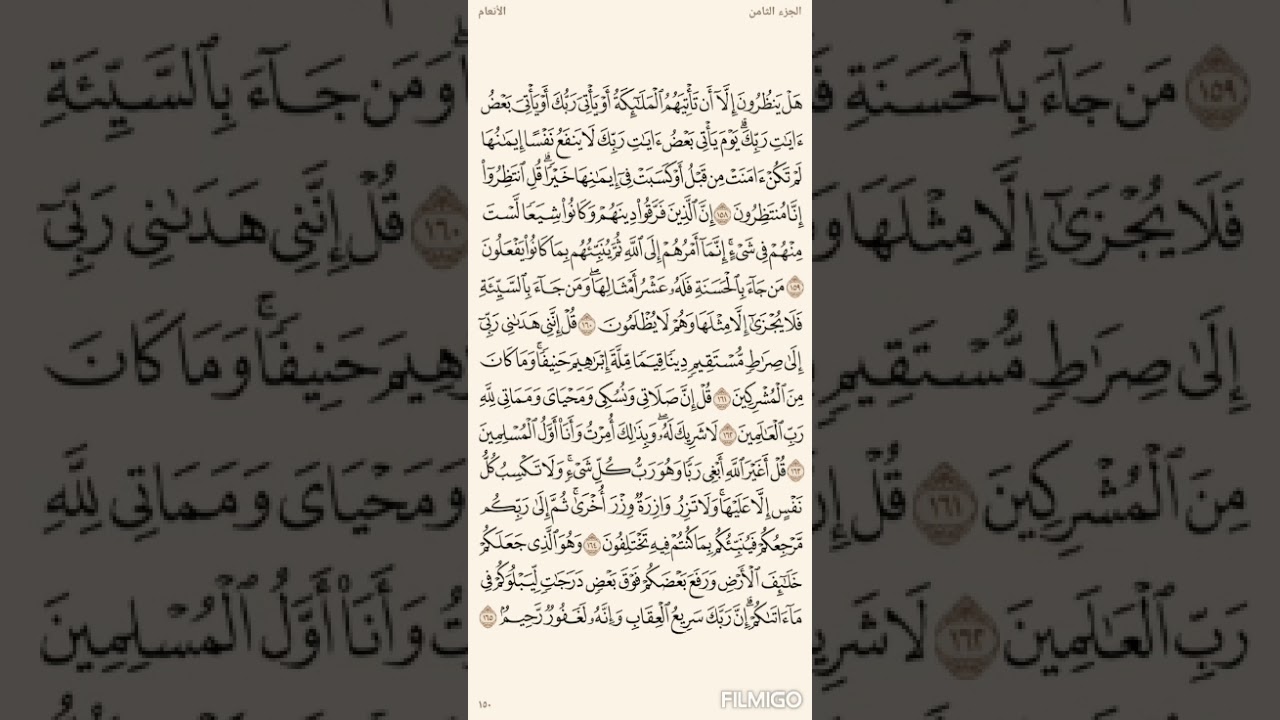 الجزء الثامن
الأنعام
هَلۡ يَنظُرُونَ إِلَّآ أَن تَأۡتِيَهُمُ ٱلۡمَلَٰٓئِكَةُ أَوۡ يَأۡتِيَ رَبُّكَ أَوۡ يَأۡتِيَ بَعۡضُ
ءَايَٰتِ رَبِّكَۗ يَوۡمَ يَأۡتِي بَعۡضُ ءَايَٰتِ رَبِّكَ لَا يَنفَعُ نَفۡسًا إِيمَٰنُهَا
لَمۡ تَكُنۡ ءَامَنَتۡ مِن قَبۡلُ أَوۡ كَسَبَتۡ فِيٓ إِيمَٰنِهَا خَيۡرٗاۗ قُلِ ٱنتَظِرُوٓاْ
إِنَّا مُنتَظِرُونَ ١٥٨ إِنَّ ٱلَّذِينَ فَرَّقُواْ دِينَهُمۡ وَكَانُواْ شِيَعٗا لَّسۡتَ
مِنۡهُمۡ فِي شَيۡءٍۚ إِنَّمَآ أَمۡرُهُمۡ إِلَى ٱللَّهِ ثُمَّ يُنَبِّئُهُم بِمَا كَانُواْ يَفۡعَلُونَ
١٥٩ مَن جَآءَ بِٱلۡحَسَنَةِ فَلَهُۥ عَشۡرُ أَمۡثَالِهَاۖ وَمَن جَآءَ بِٱلسَّيِّئَةِ
فَلَا يُجۡزَىٰٓ إِلَّا مِثۡلَهَا وَهُمۡ لَا يُظۡلَمُونَ ١٦٠ قُلۡ إِنَّنِي هَدَىٰنِي رَبِّيٓ
إِلَىٰ صِرَٰطٖ مُّسۡتَقِيمٖ دِينٗا قِيَمٗا مِّلَّةَ إِبۡرَٰهِيمَ حَنِيفٗاۚ وَمَا كَانَ
مِنَ ٱلۡمُشۡرِكِينَ ١٦١ قُلۡ إِنَّ صَلَاتِي وَنُسُكِي وَمَحۡيَايَ وَمَمَاتِي لِلَّهِ
رَبِّ ٱلۡعَٰلَمِينَ ١٦٢ لَا شَرِيكَ لَهُۥۖ وَبِذَٰلِكَ أُمِرۡتُ وَأَنَا۠ أَوَّلُ ٱلۡمُسۡلِمِينَ
١٦٣ قُلۡ أَغَيۡرَ ٱللَّهِ أَبۡغِي رَبّٗا وَهُوَ رَبُّ كُلِّ شَيۡءٖۚ وَلَا تَكۡسِبُ كُلُّ
نَفۡسٍ إِلَّا عَلَيۡهَاۚ وَلَا تَزِرُ وَازِرَةٞ وِزۡرَ أُخۡرَىٰۚ ثُمَّ إِلَىٰ رَبِّكُم
مَّرۡجِعُكُمۡ فَيُنَبِّئُكُم بِمَا كُنتُمۡ فِيهِ تَخۡتَلِفُونَ ١٦٤ وَهُوَ ٱلَّذِي جَعَلَكُمۡ
خَلَٰٓئِفَ ٱلۡأَرۡضِ وَرَفَعَ بَعۡضَكُمۡ فَوۡقَ بَعۡضٖ دَرَجَٰتٖ لِّيَبۡلُوَكُمۡ فِي
مَآ ءَاتَىٰكُمۡۗ إِنَّ رَبَّكَ سَرِيعُ ٱلۡعِقَابِ وَإِنَّهُۥ لَغَفُورٞ رَّحِيمُۢ ١٦٥
١٥٠
FILMIGO